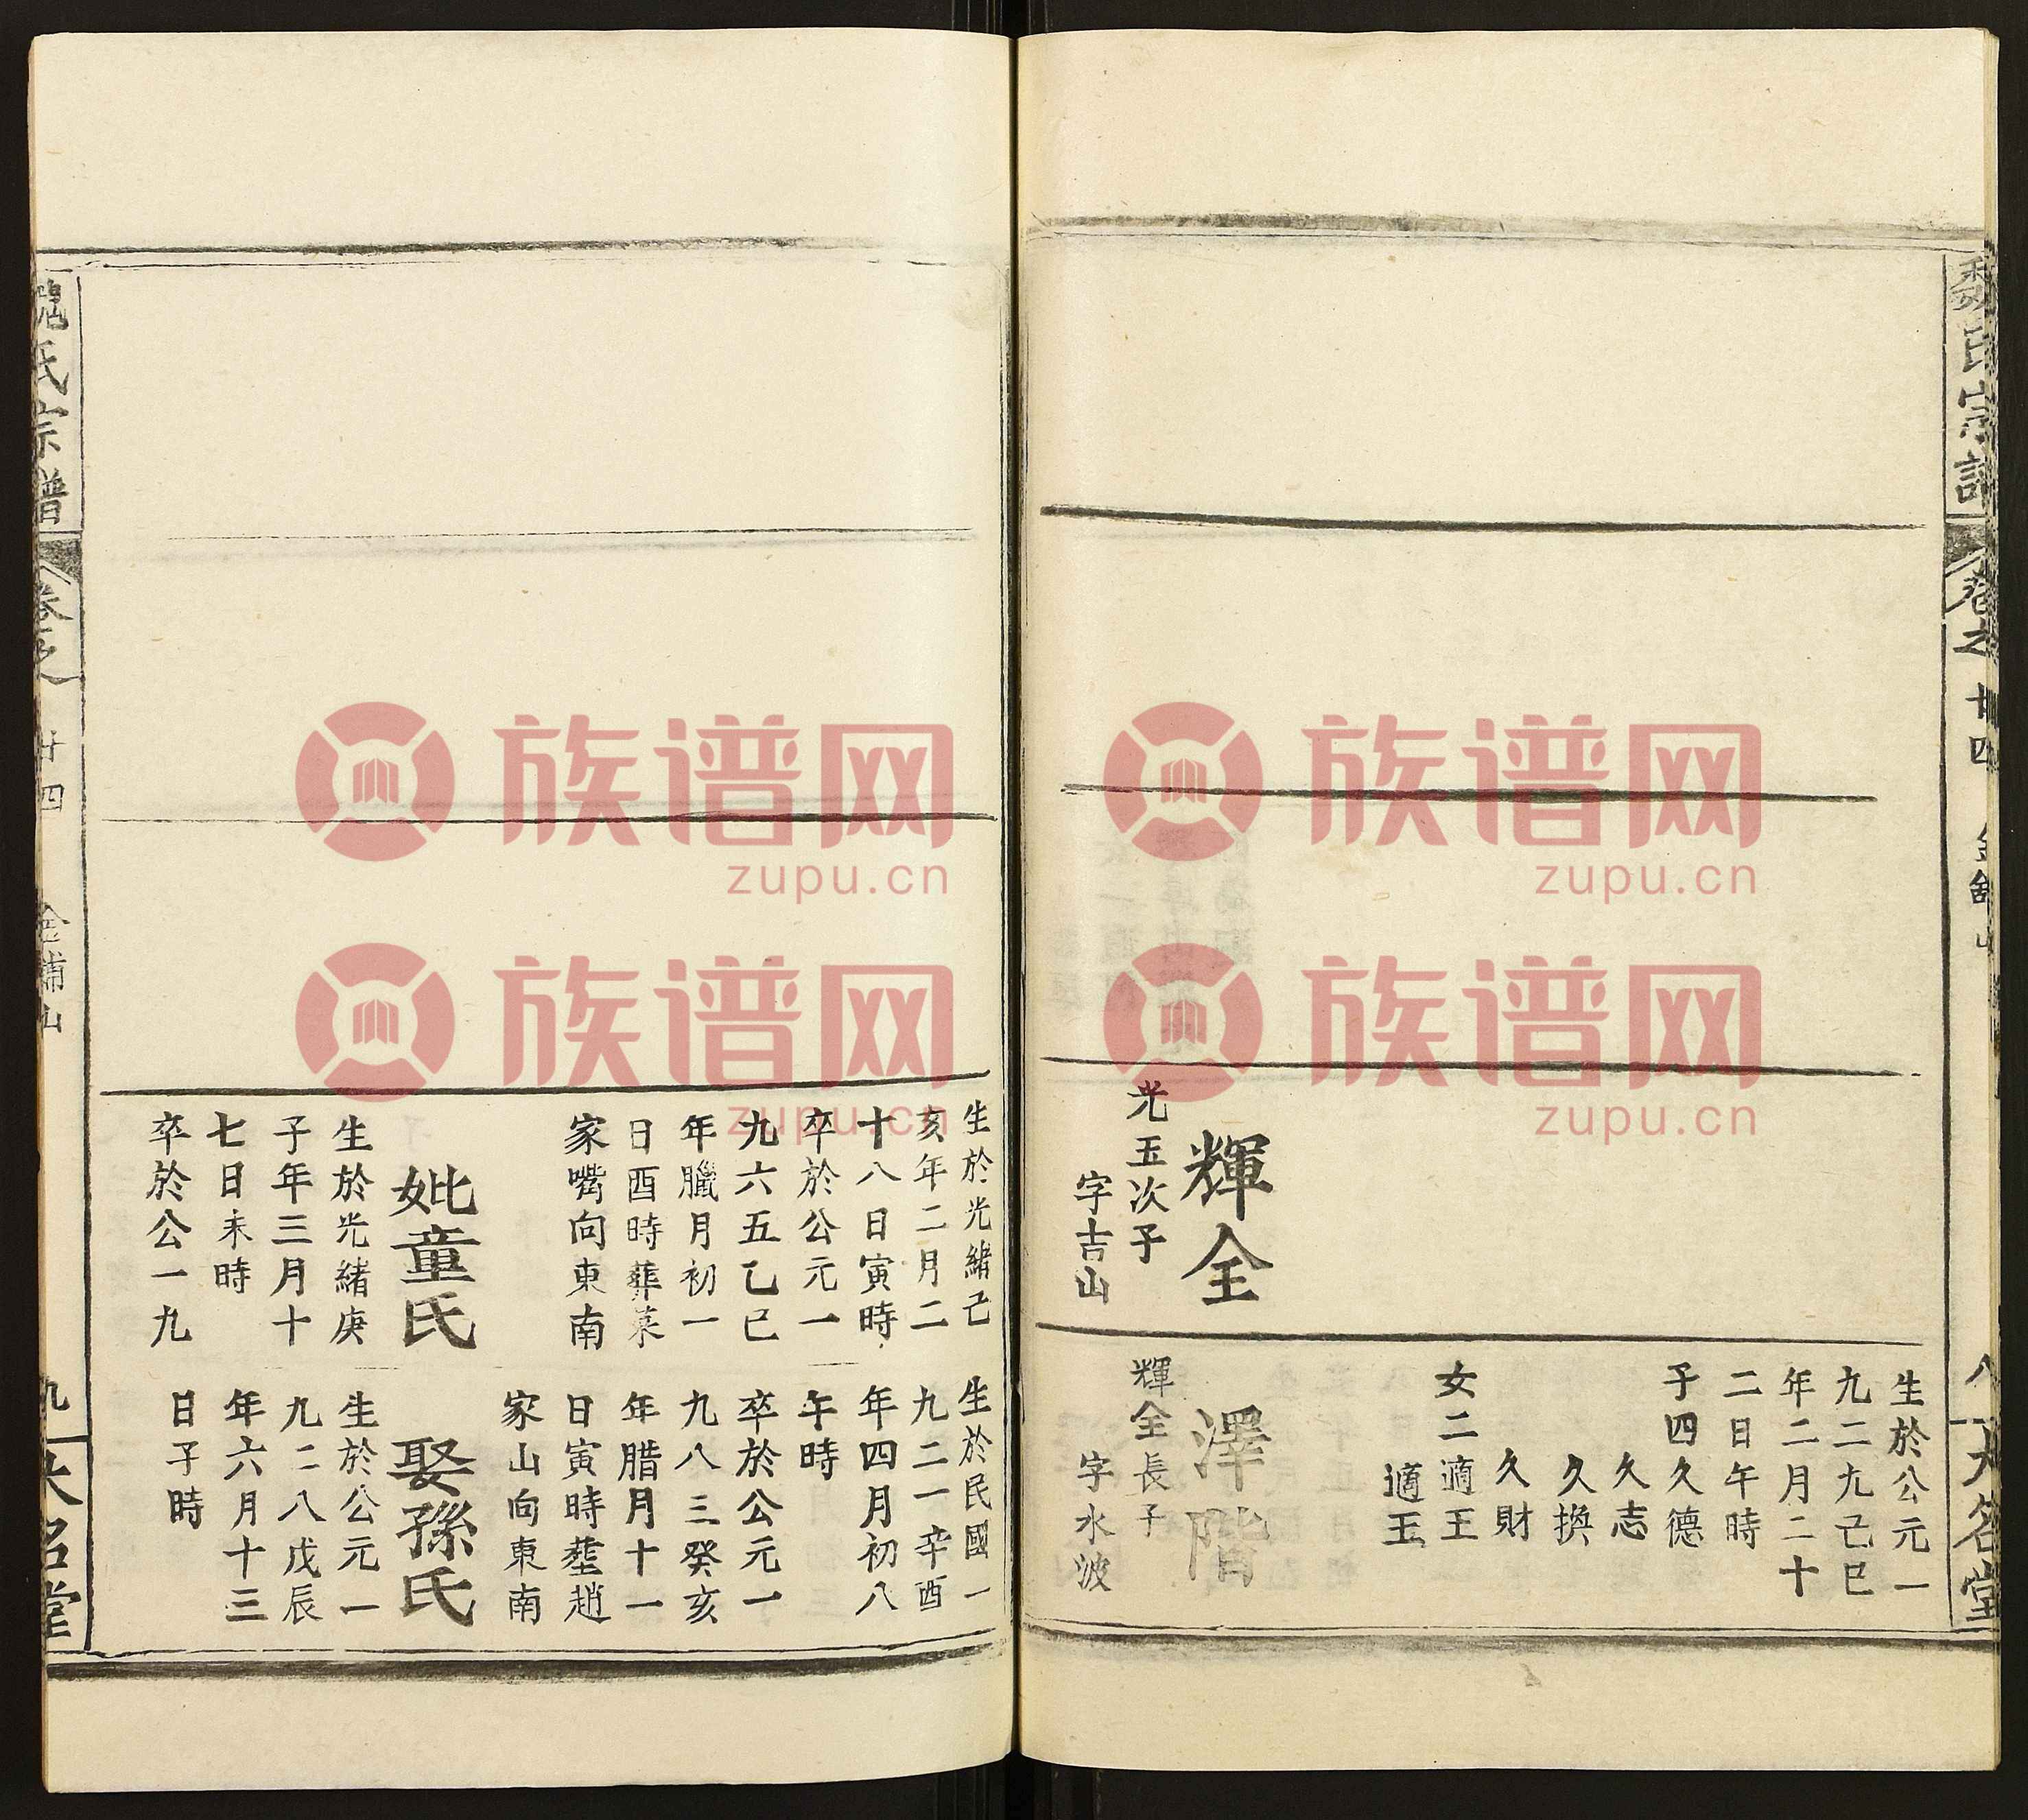 魏氏宗譜
卷之
廿四
八
大名堂
輝全
光五次子
字吉山
生於公元一
九二九己巳
年二月二十
二日午時
子四久德
久志
久換
久財
女二適王
適玉
澤階
輝全長子
字水波
生於光緒己
亥年二月二
十八日寅時
卒於公元一
九六五乙巳
年臘月初一
日酉時葬菜
家嘴向東南
妣童氏
生於光緒庚
子年三月十
七日未時
卒於公一九
生於民國一
九二一辛酉
年四月初八
午時
卒於公元一
九八三癸亥
年腊月十一
日寅時塟趙
家山向東南
娶孫氏
生於公元一
九二八戊辰
年六月十三
日子時
魏氏宗譜
卷之
廿四
九
大名堂
族谱网
zupu.cn
族谱网
zupu.cn
族谱网
zupu.cn
族谱网
zupu.cn